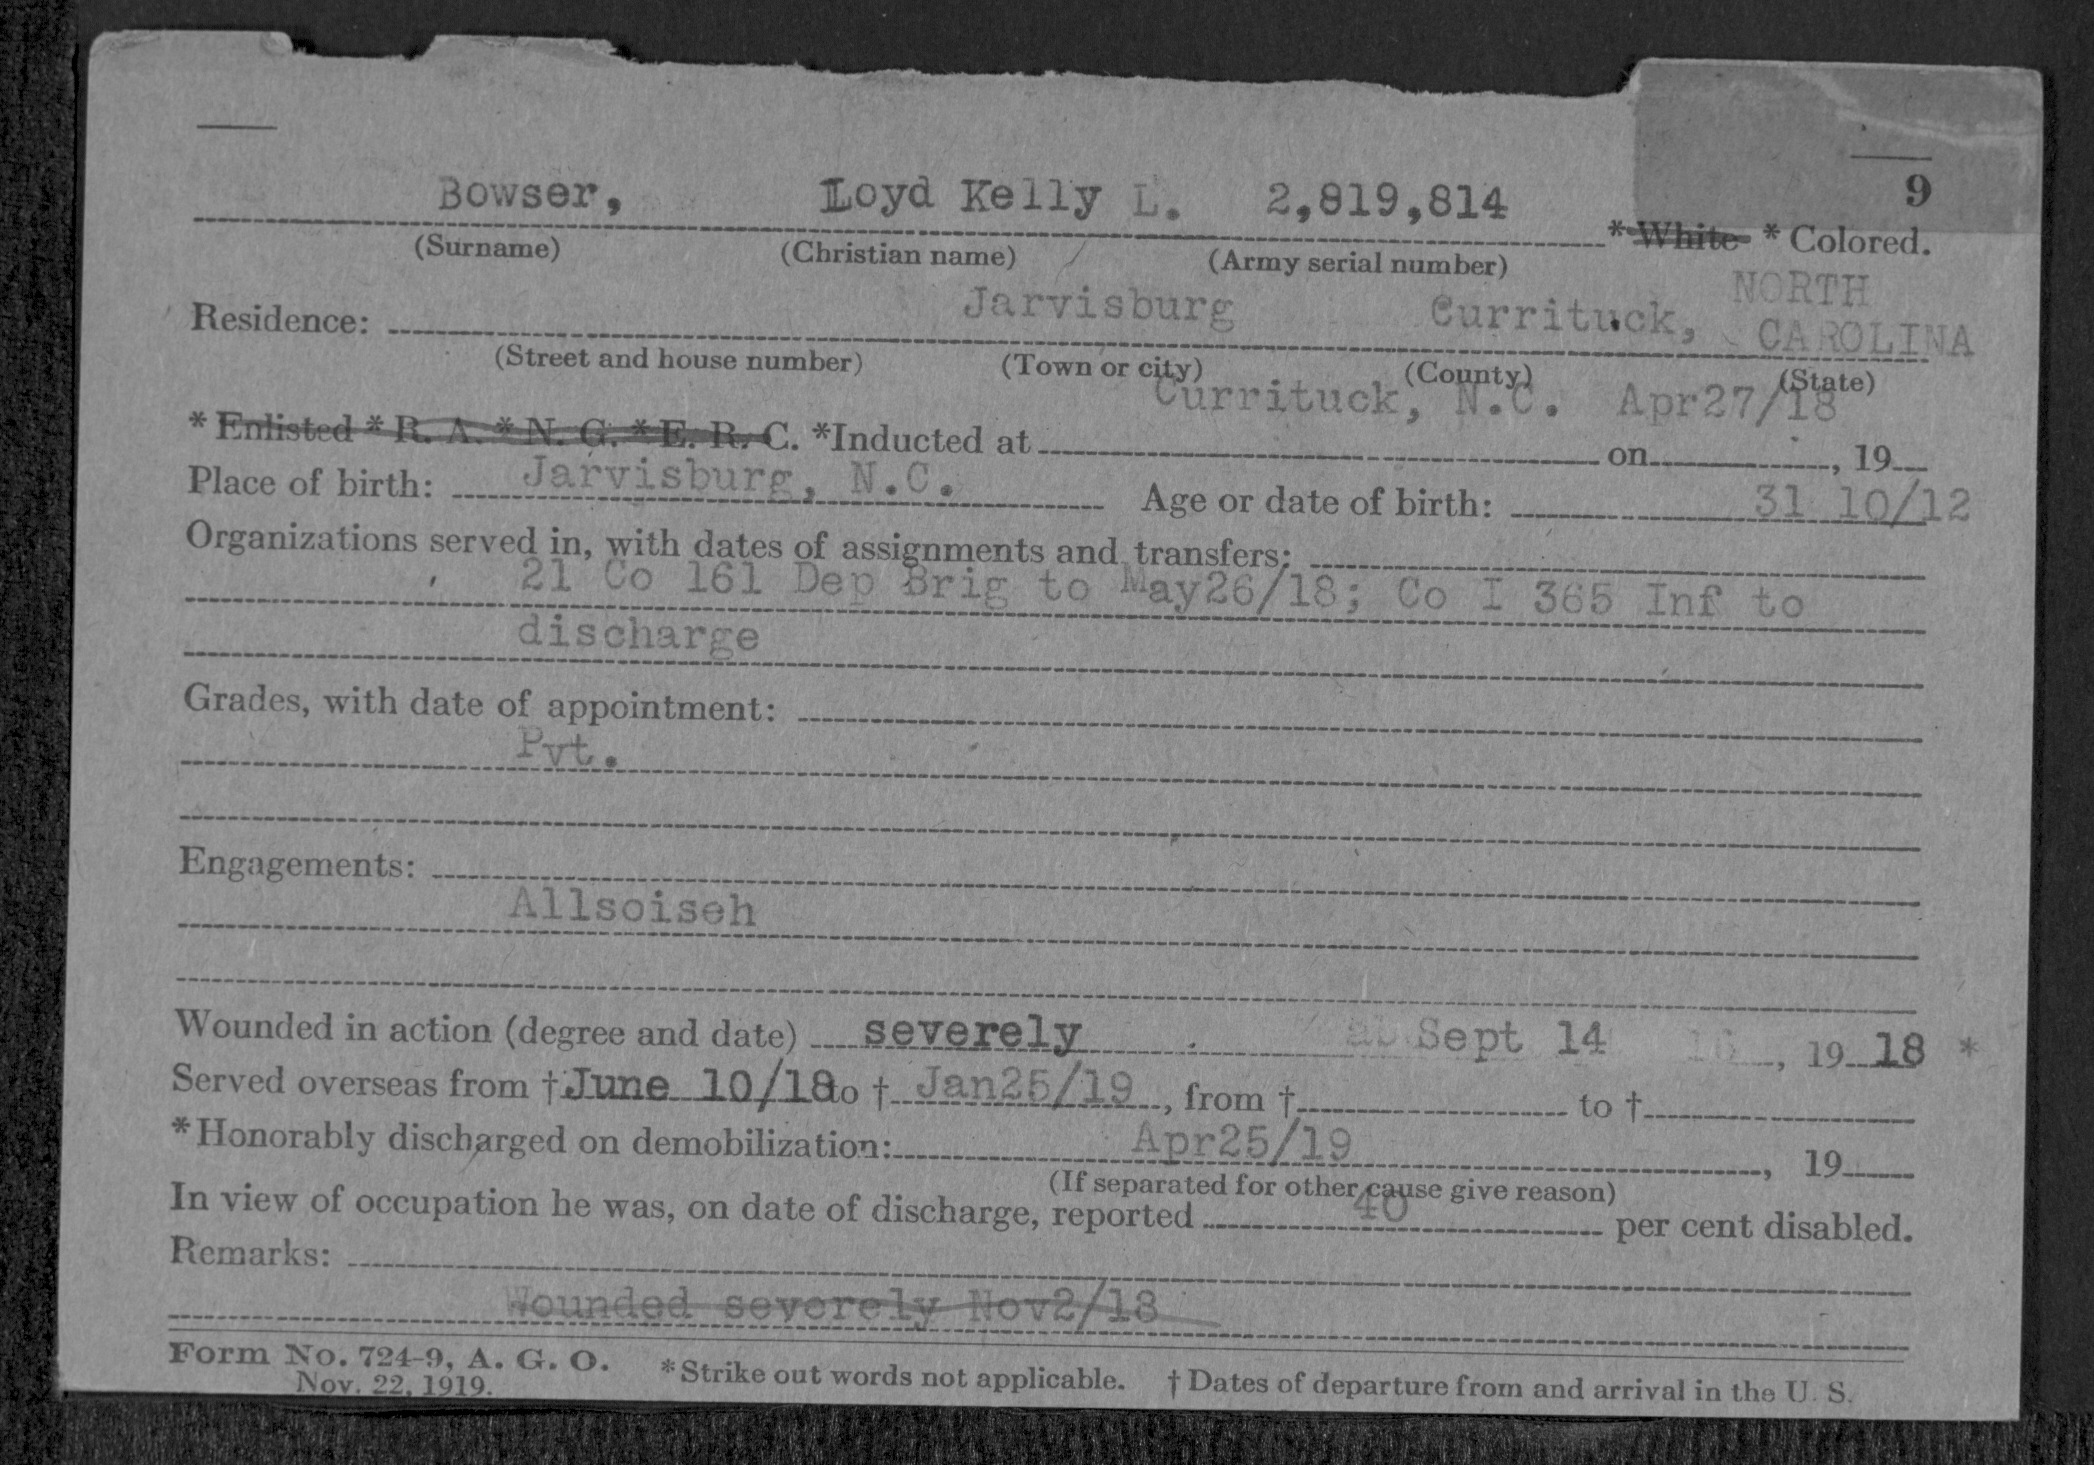 9
Bowser, Loyd Kelly L. 2,819,814 * White * Colored.
(Surname) (Christian name) (Army serial number)
Residence: Jarvisburg Currituck, NORTH CAROLINA
(Street and house number) (Town or city) (County) (State)
Currituck, N.C. Apr27/18
* Enlisted * R. A. * N. G. * E. R. C. *Inducted at on , 19
Place of birth: Jarvisburg, N.C. Age or date of birth: 31 10/12
Organizations served in, with dates of assignments and transfers:
21 Co 161 Dep Brig to May26/18; Co I 365 Inf to
discharge
Grades, with date of appointment:
Pvt.
Engagements:
Allsoiseh
Wounded in action (degree and date) severely Sept 14 , 19 18 *
Served overseas from † June 10/18 to † Jan25/19 , from † to †
*Honorably discharged on demobilization: Apr25/19 , 19
(If separated for other cause give reason)
In view of occupation he was, on date of discharge, reported 40 per cent disabled.
Remarks:
Wounded severely Nov2/18
Form No. 724-9, A. G. O. *Strike out words not applicable. † Dates of departure from and arrival in the U. S.
Nov. 22, 1919.